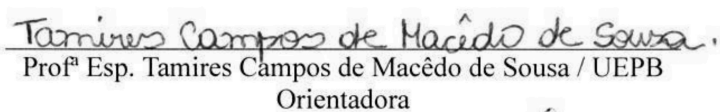 Tamires Campos de Macêdo de Sousa.
Profª Esp. Tamires Campos de Macêdo de Sousa / UEPB
Orientadora